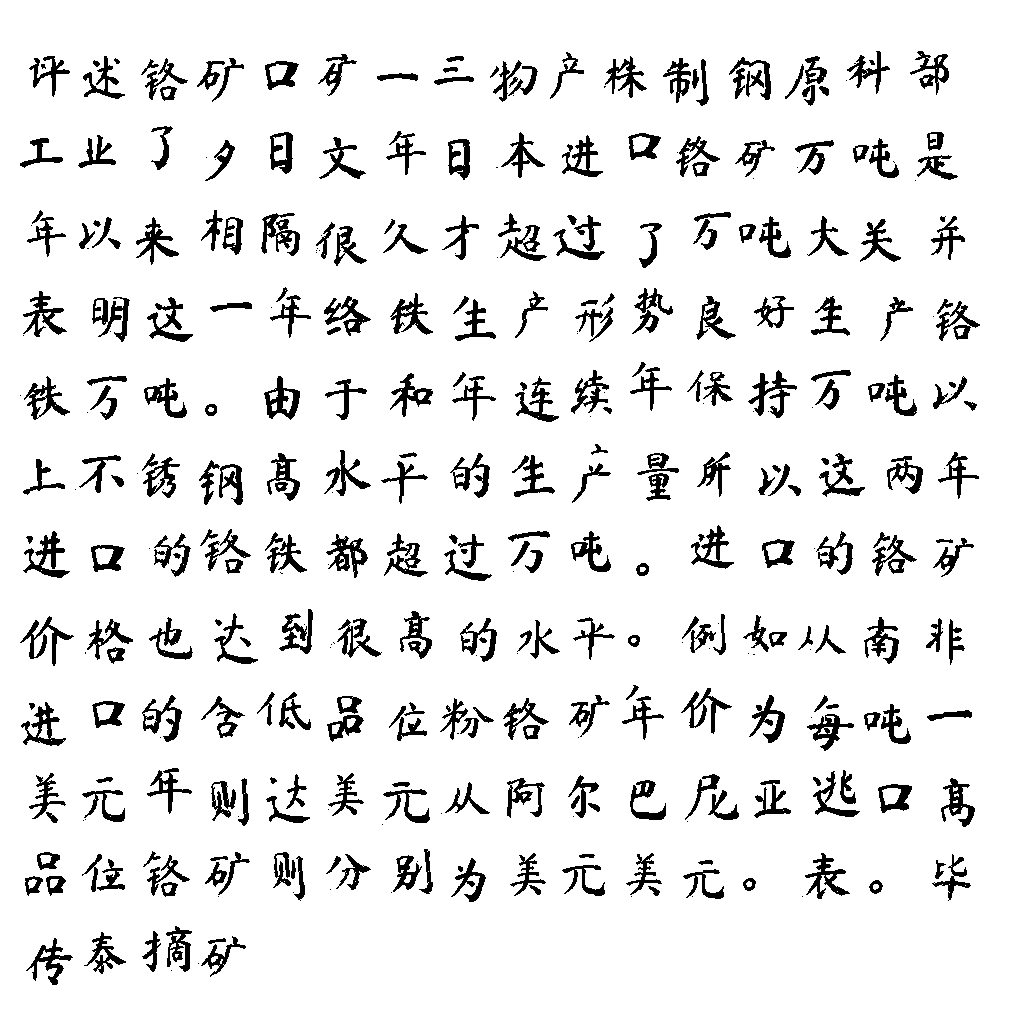 评述铬矿口矿一三物产株制钢原科部
工业了夕日文年日本进口铬矿万吨是
年以来相隔很久才超过了万吨大关并
表明这一年络铁生产形势良好生产铬
铁万吨。由于和年连续年保持万吨以
上不锈钢高水平的生产量所以这两年
进口的铬铁都超过万吨。进口的铬矿
价格也达到很高的水平。例如从南非
进口的含低品位粉铬矿年价为每吨一
美元年则达美元从阿尔巴尼亚逃口高
品位铬矿则分别为美元美元。表。毕
传泰摘矿